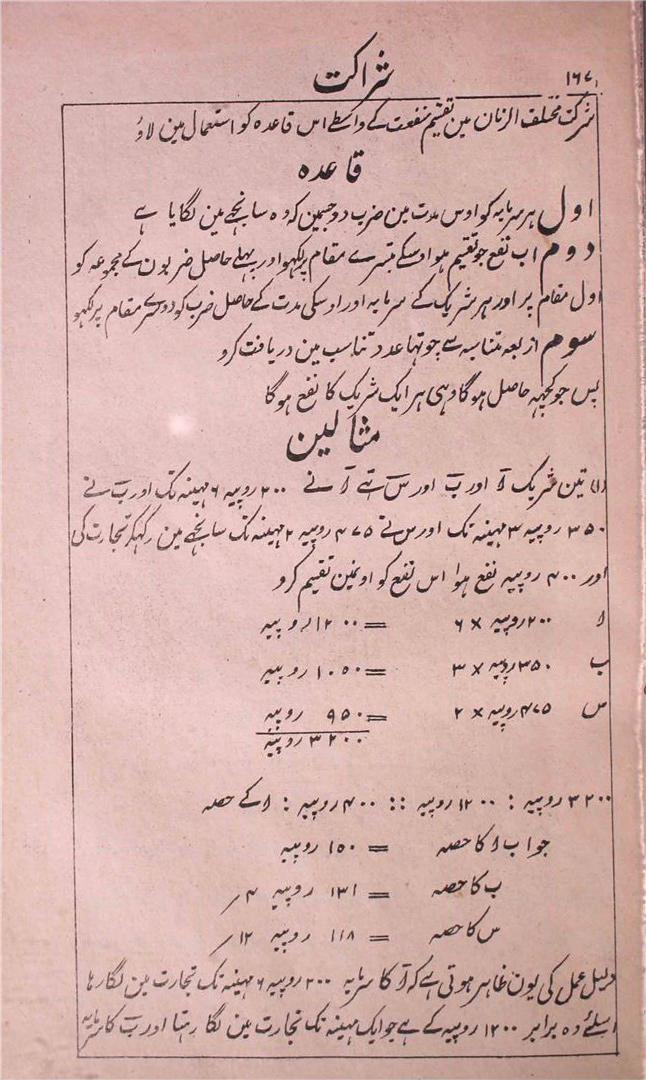 ۱۶۷
شراکت
شرکت مختلف الزمان مین تقسیم منفعت کے واسطے اس قاعدہ کو استعمال مین لاؤ
قاعدہ
اول ہر سرمایہ کو اوس مدت مین ضرب دو جسمین کہ وہ سانجھے مین لگایا ہے
دوم اب نفع جو تقسیم ہو اوسکے تیسرے مقام پر لکھو اور پہلے حاصل ضربون کے مجموعہ کو
اول مقام پر اور ہر شریک کے سرمایہ اور اوسکی مدت کے حاصل ضرب کو دوسرے مقام پر لکھو
سوم اربعہ متناسبہ سے چوتھا عدد تناسب مین دریافت کرو
پس جو کچھہ حاصل ہوگا وہی ہر ایک شریک کا نفع ہوگا
مثالین
(۱) تین شریک آ اور ب اور س تھے آ نے ۲۰۰ روپیہ ۶ مہینہ تک اور ب نے
۳۵۰ روپیہ ۳ مہینہ تک اور س نے ۴۷۵ روپیہ ۲ مہینہ تک سانجھے مین رکھکر تجارت کی
اور ۴۰۰ روپیہ نفع ہوا اس نفع کو اونمین تقسیم کرو
ا ۲۰۰ روپیہ × ۶ = ۱۲۰۰ روپیہ
ب ۳۵۰ روپیہ × ۳ = ۱۰۵۰ روپیہ
س ۴۷۵ روپیہ × ۲ = ۹۵۰ روپیہ
۳۲۰۰ روپیہ
۳۲۰۰ روپیہ : ۱۲۰۰ روپیہ :: ۴۰۰ روپیہ : ا کے حصہ
جواب ا کا حصہ = ۱۵۰ روپیہ
ب کا حصہ = ۱۳۱ روپیہ ۴؍
س کا حصہ = ۱۱۸ روپیہ ۱۲؍
دلیل عمل کی یون ظاہر ہوتی ہے کہ آ کا سرمایہ ۲۰۰ روپیہ ۶ مہینہ تک تجارت مین لگا رہا
اسلئے وہ برابر ۱۲۰۰ روپیہ کے ہے جو ایک مہینہ تک تجارت مین لگا رہتا اور ب کا سرمایہ